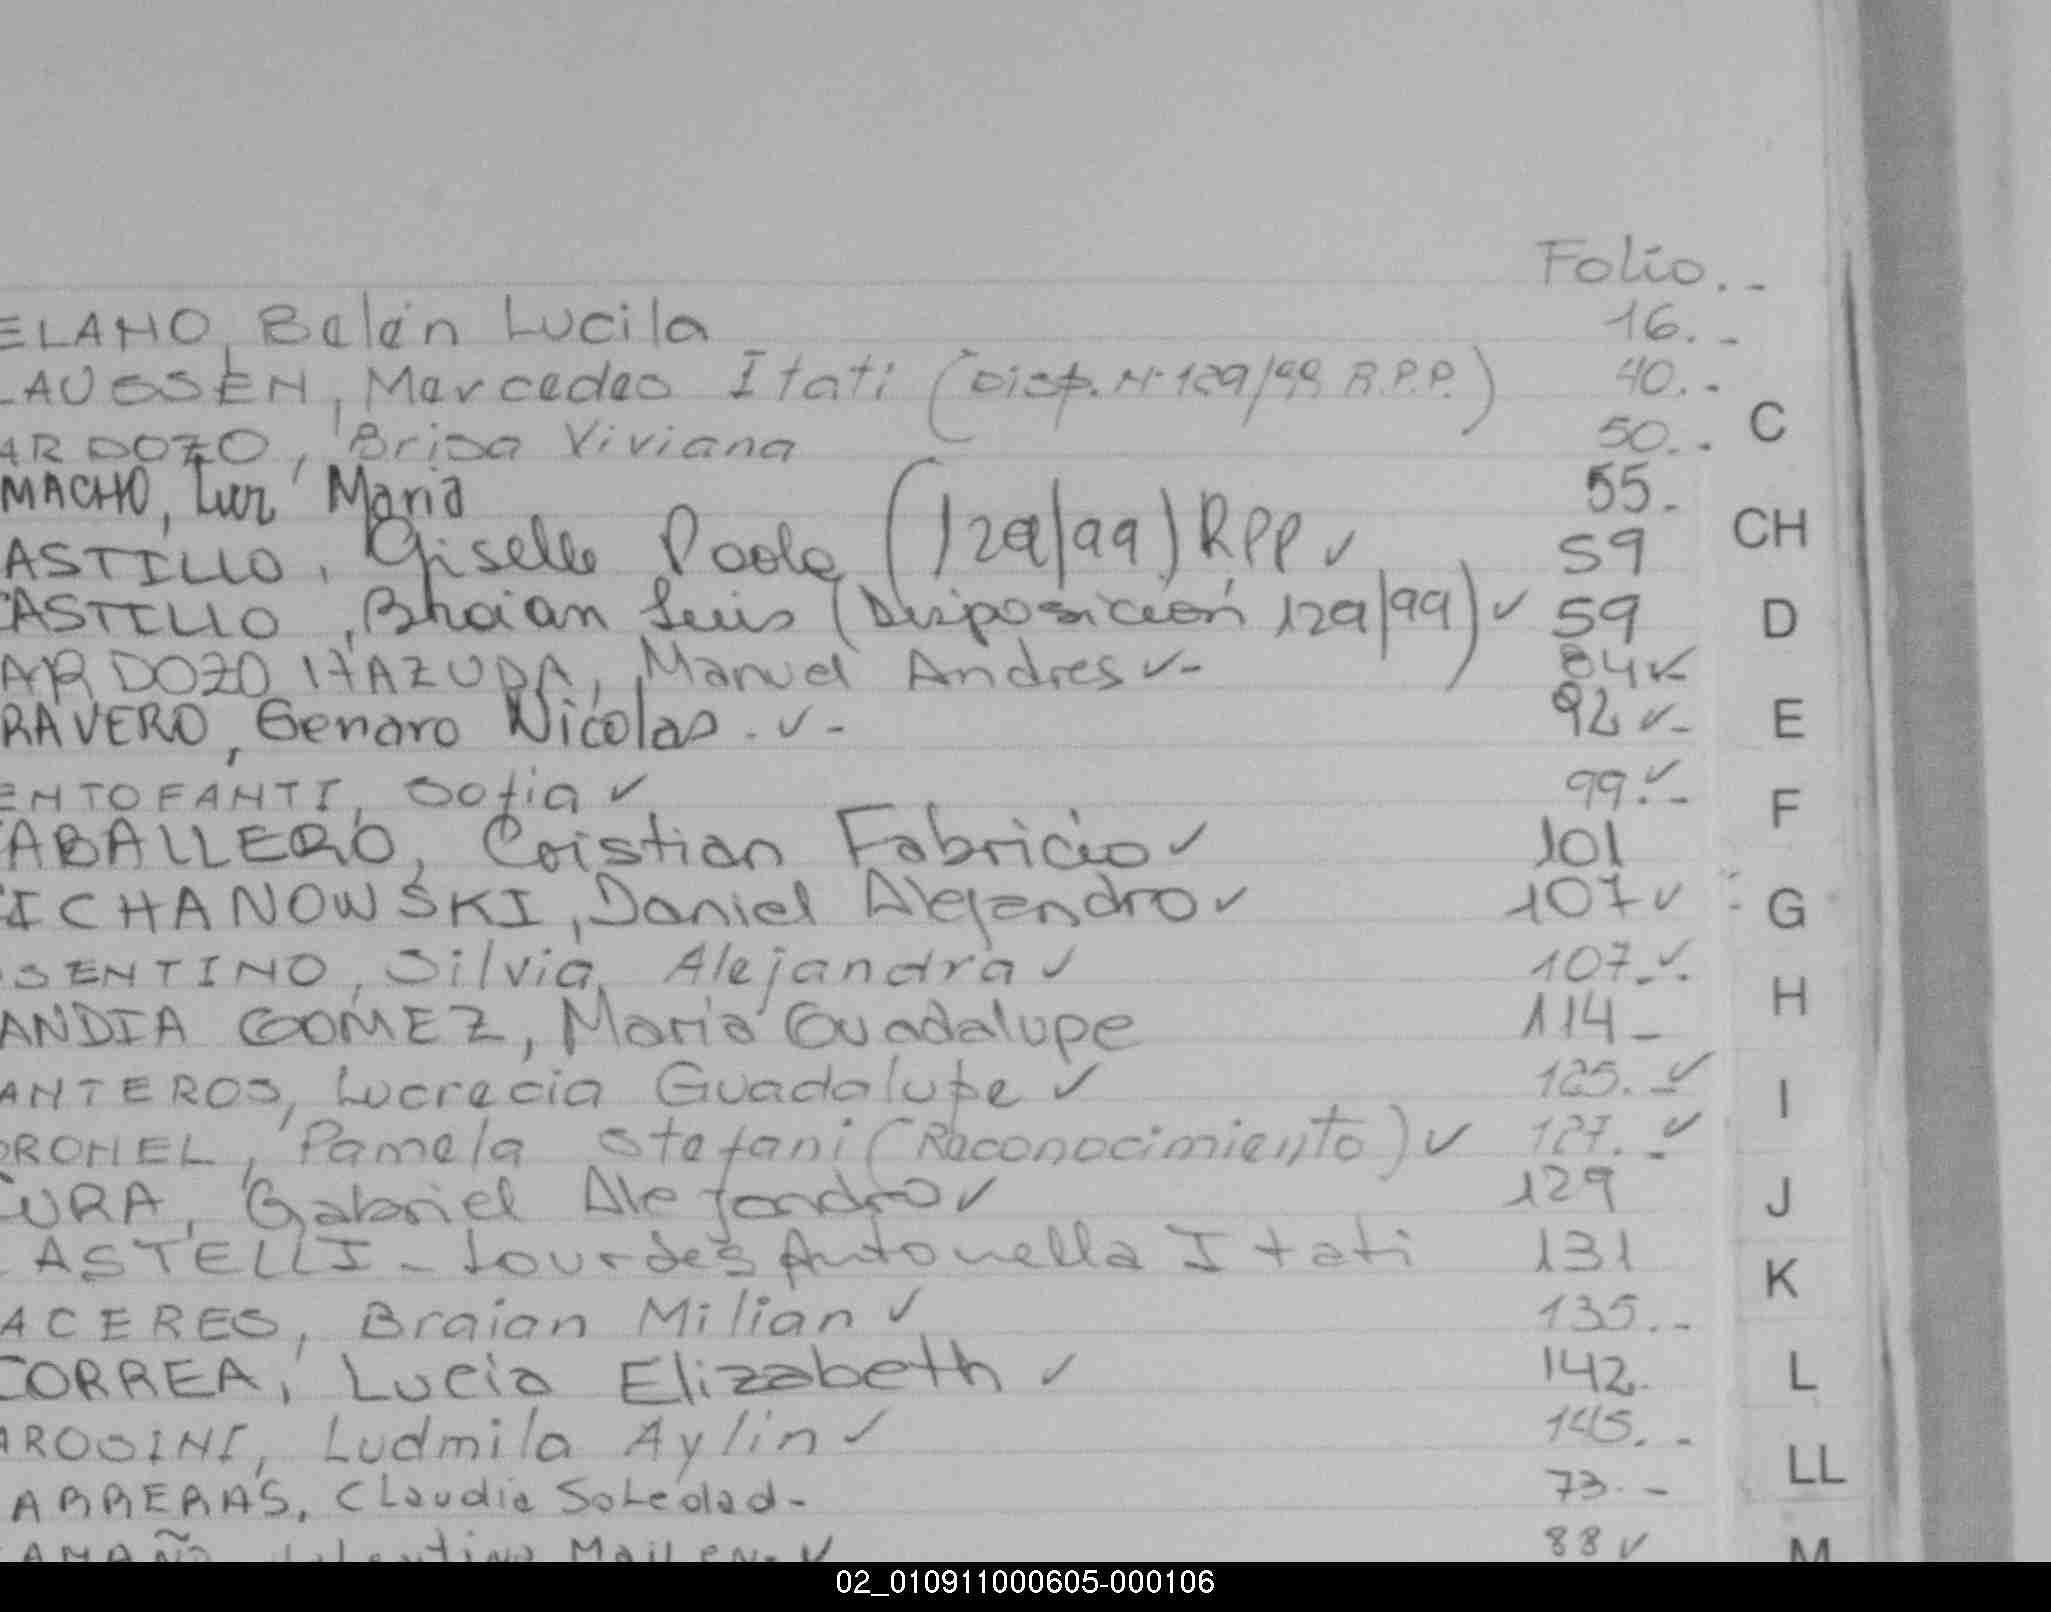 Folio..-
ELANO, Belén Lucila 16..-
LAUSSEN, Mercedes Itati (Disp. Nº 129/99 R.P.P.) 40..-
ARDOZO, Brisa Viviana 50..
C
MACHO, Luz Maria 55.-
CH
ASTILLO, Giselle Paola (129/99) RPP ✓ 59
CASTILLO, Bhaian Luis (Disposición 129/99) ✓ 59
D
ARDOZO ITAZURA, Manuel Andres ✓- 84 ✓
RAVERO, Genaro Nicolas. ✓- 92 ✓-
E
ENTOFANTI, Sofia ✓ 99.✓-
F
CABALLERO, Cristian Fabricio ✓ 101
CICHANOWSKI, Daniel Alejandro ✓ 107 ✓
G
OSENTINO, Silvia Alejandra ✓ 107.-✓.
H
ANDIA GOMEZ, Maria Guadalupe 114-
ANTEROS, Lucrecia Guadalupe ✓ 125.-✓
I
ORONEL, Pamela Stefani (Reconocimiento) ✓ 127.-✓
CURA, Gabriel Alejandro ✓ 129
J
CASTELLI - Lourdes Antonella Itati 131
K
ACERES, Braian Milian ✓ 135..-
CORREA, Lucia Elizabeth ✓ 142.
L
AROSINI, Ludmila Aylin ✓ 145..-
LL
ARRERAS, Claudia Soledad- 73.-
AMAÑO Mailen. ✓ 88 ✓
M
02_010911000605-000106